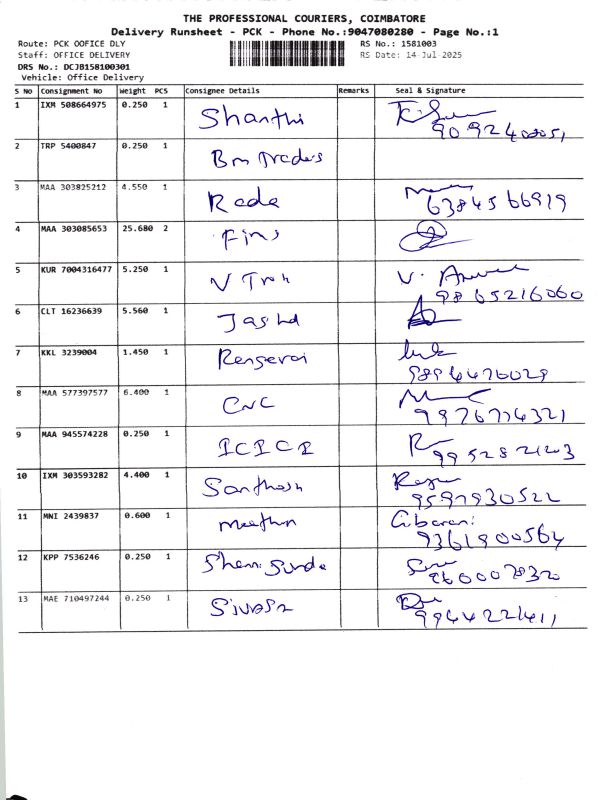 THE PROFESSIONAL COURIERS, COIMBATORE
Delivery Runsheet - PCK - Phone No.:9047080280 - Page No.:1
Route: PCK OOFICE DLY
RS No.: 1581003
Staff: OFFICE DELIVERY
RS Date: 14-Jul-2025
DRS No.: DCJB158100301
Vehicle: Office Delivery
S NO Consignment No Weight PCS Consignee Details Remarks Seal & Signature
1 IXM 508664975 0.250 1 Shanthi
2 TRP 5400847 0.250 1 Bm Traders
3 MAA 303825212 4.550 1 Rada
6384566919
4 MAA 303085653 25.680 2 Fins
5 KUR 7004316477 5.250 1 V
9865216060
6 CLT 16236639 5.560 1
7 KKL 3239004 1.450 1
9894476029
8 MAA 577397577 6.400 1 CNC
9976774321
9 MAA 945574228 0.250 1 ICICI
10 IXM 303593282 4.400 1 Santhosh
9597930522
11 MNI 2439837 0.600 1
9361900564
12 KPP 7536246 0.250 1
8600078320
13 MAE 710497244 0.250 1
9944221411